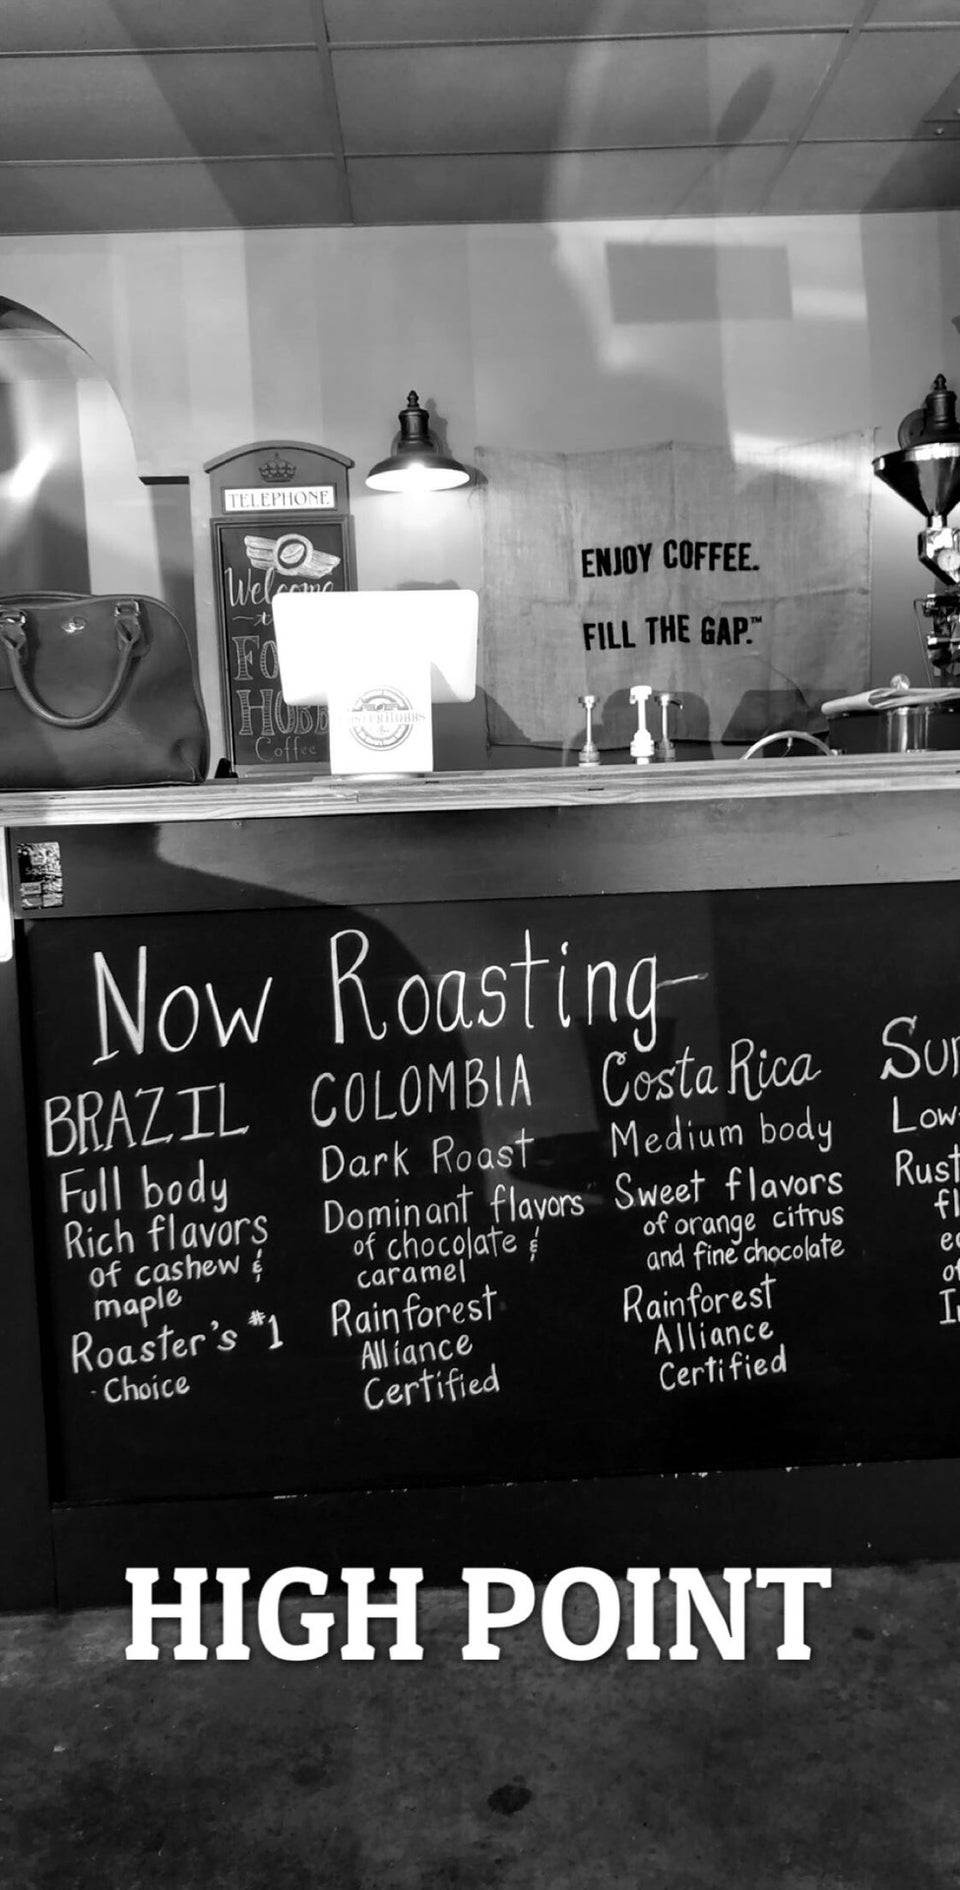 TELEPHONE
Welcome
Coffee
ENJOY COFFEE.
FILL THE GAP.™
Now Roasting
BRAZIL
Full body
Rich flavors
of cashew &
maple
Roaster's #1
Choice
COLOMBIA
Dark Roast
Dominant flavors
of chocolate &
caramel
Rainforest
Alliance
Certified
Costa Rica
Medium body
Sweet flavors
of orange citrus
and fine chocolate
Rainforest
Alliance
Certified
Low
HIGH POINT